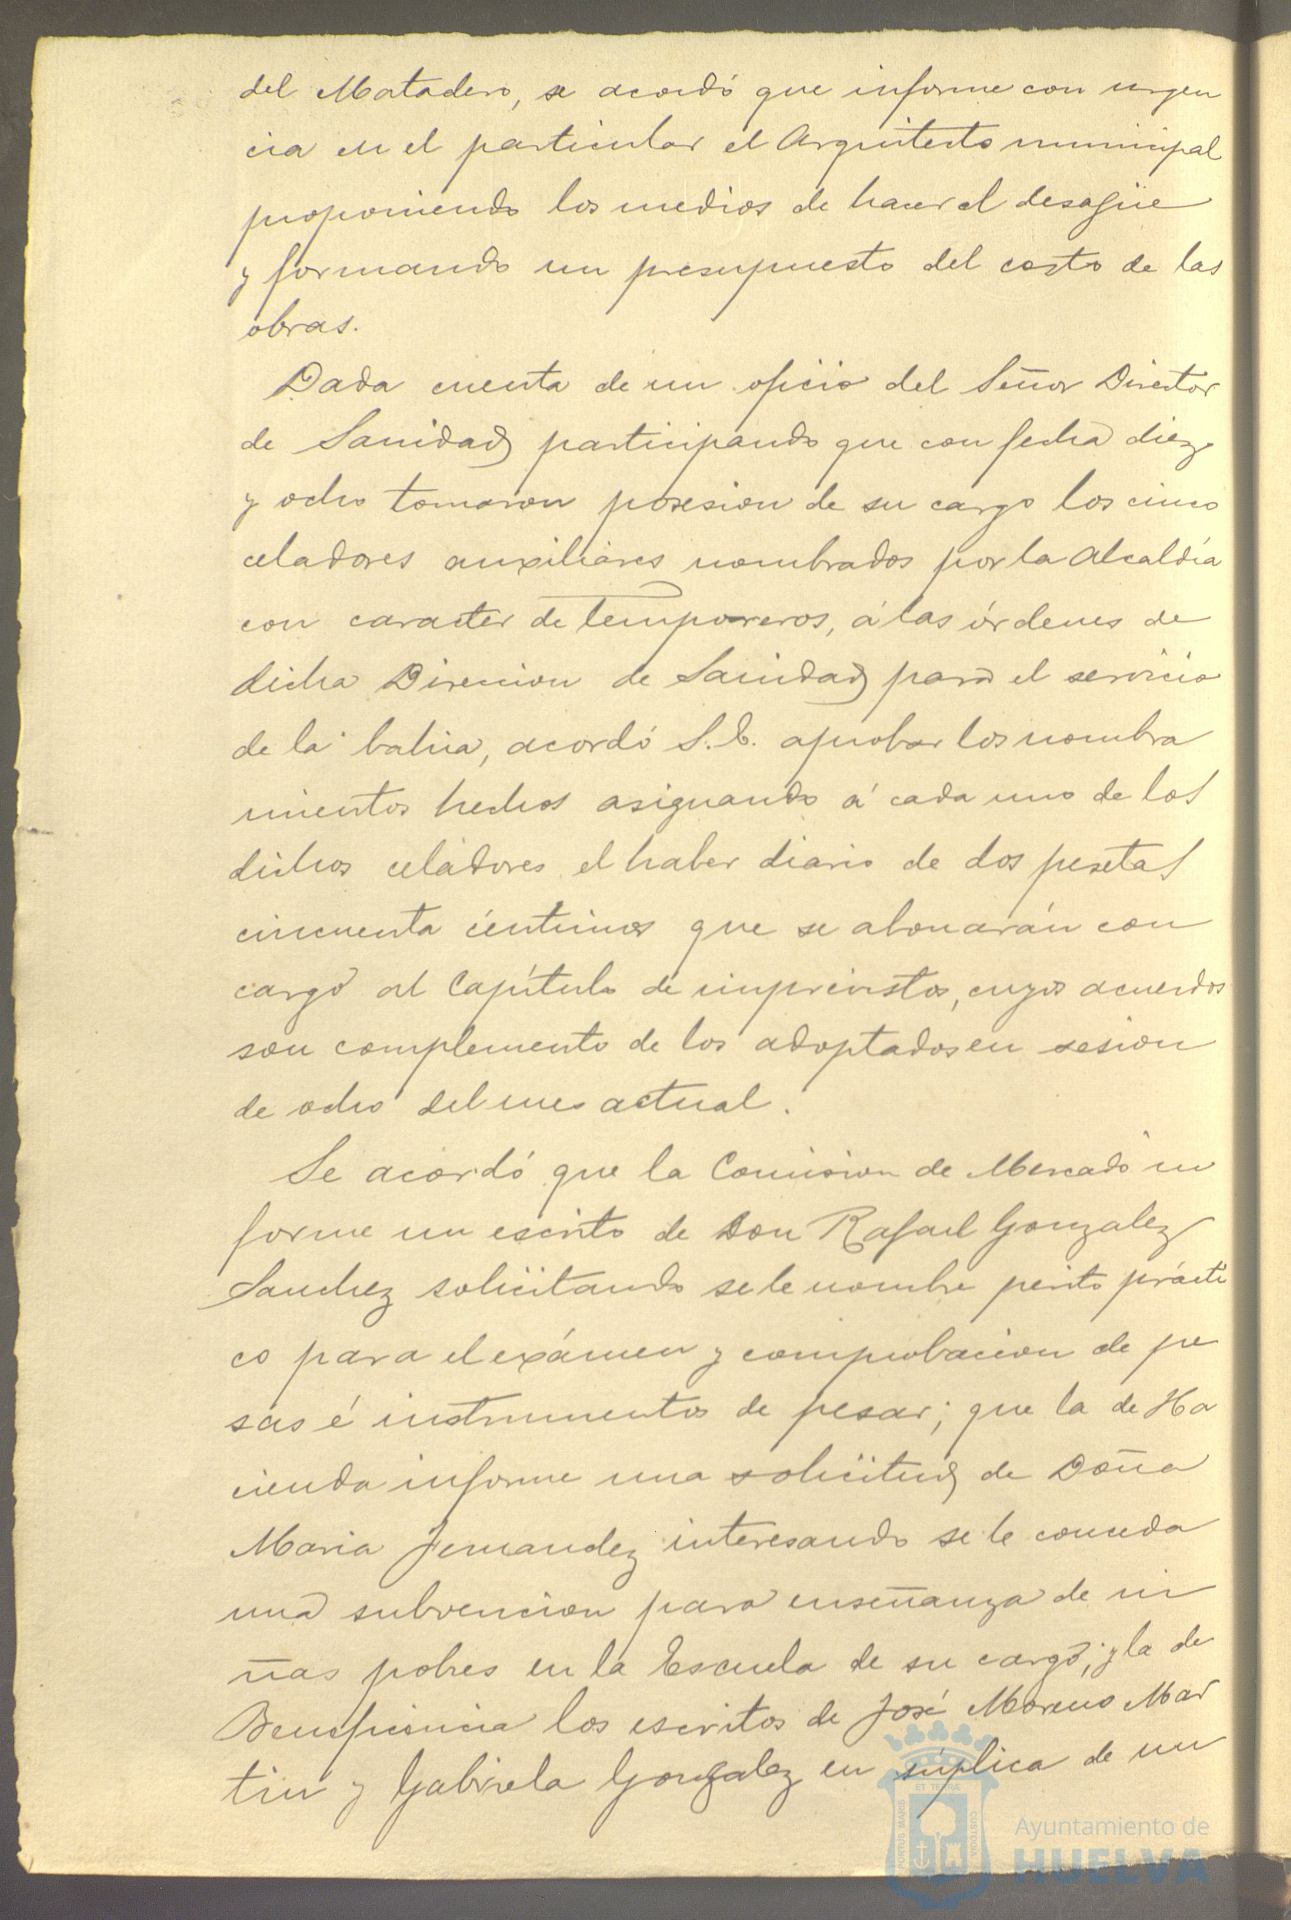 del Matadero, se acordó que informe con urgen
cia en el particular el Arquitecto municipal
proponiendo los medios de hacer el desagüe
y formando un presupuesto del costo de las
obras.
Dada cuenta de un oficio del Señor Director
de Sanidad participando que con fecha diez
y ocho tomaron posesion de su cargo los cinco
celadores auxiliares nombrados por la Alcaldía
con caracter de temporeros, á las órdenes de
dicha Direccion de Sanidad para el servicio
de la bahia, acordó S.E. aprobar los nombra
mientos hechos asignando á cada uno de los
dichos celadores el haber diario de dos pesetas
cincuenta céntimos que se abonarán con
cargo al Capítulo de imprevistos, cuyos acuerdos
son complemento de los adoptados en sesion
de ocho del mes actual.
Se acordó que la Comision de Mercado in
forme un escrito de Don Rafael Gonzalez
Sanchez solicitando se le nombre perito prácti
co para el exámen y comprobacion de pe
sas é instrumentos de pesar; que la de Ha
cienda informe una solicitud de Doña
Maria Fernandez interesando se le conceda
una subvencion para enseñanza de ni
ñas pobres en la Escuela de su cargo; y la de
Beneficencia los escritos de José Moreno Mar
tin y Gabriela Gonzalez en súplica de un
PORTUS MARIS ET TERRÆ CUSTODIA
Ayuntamiento de
HUELVA